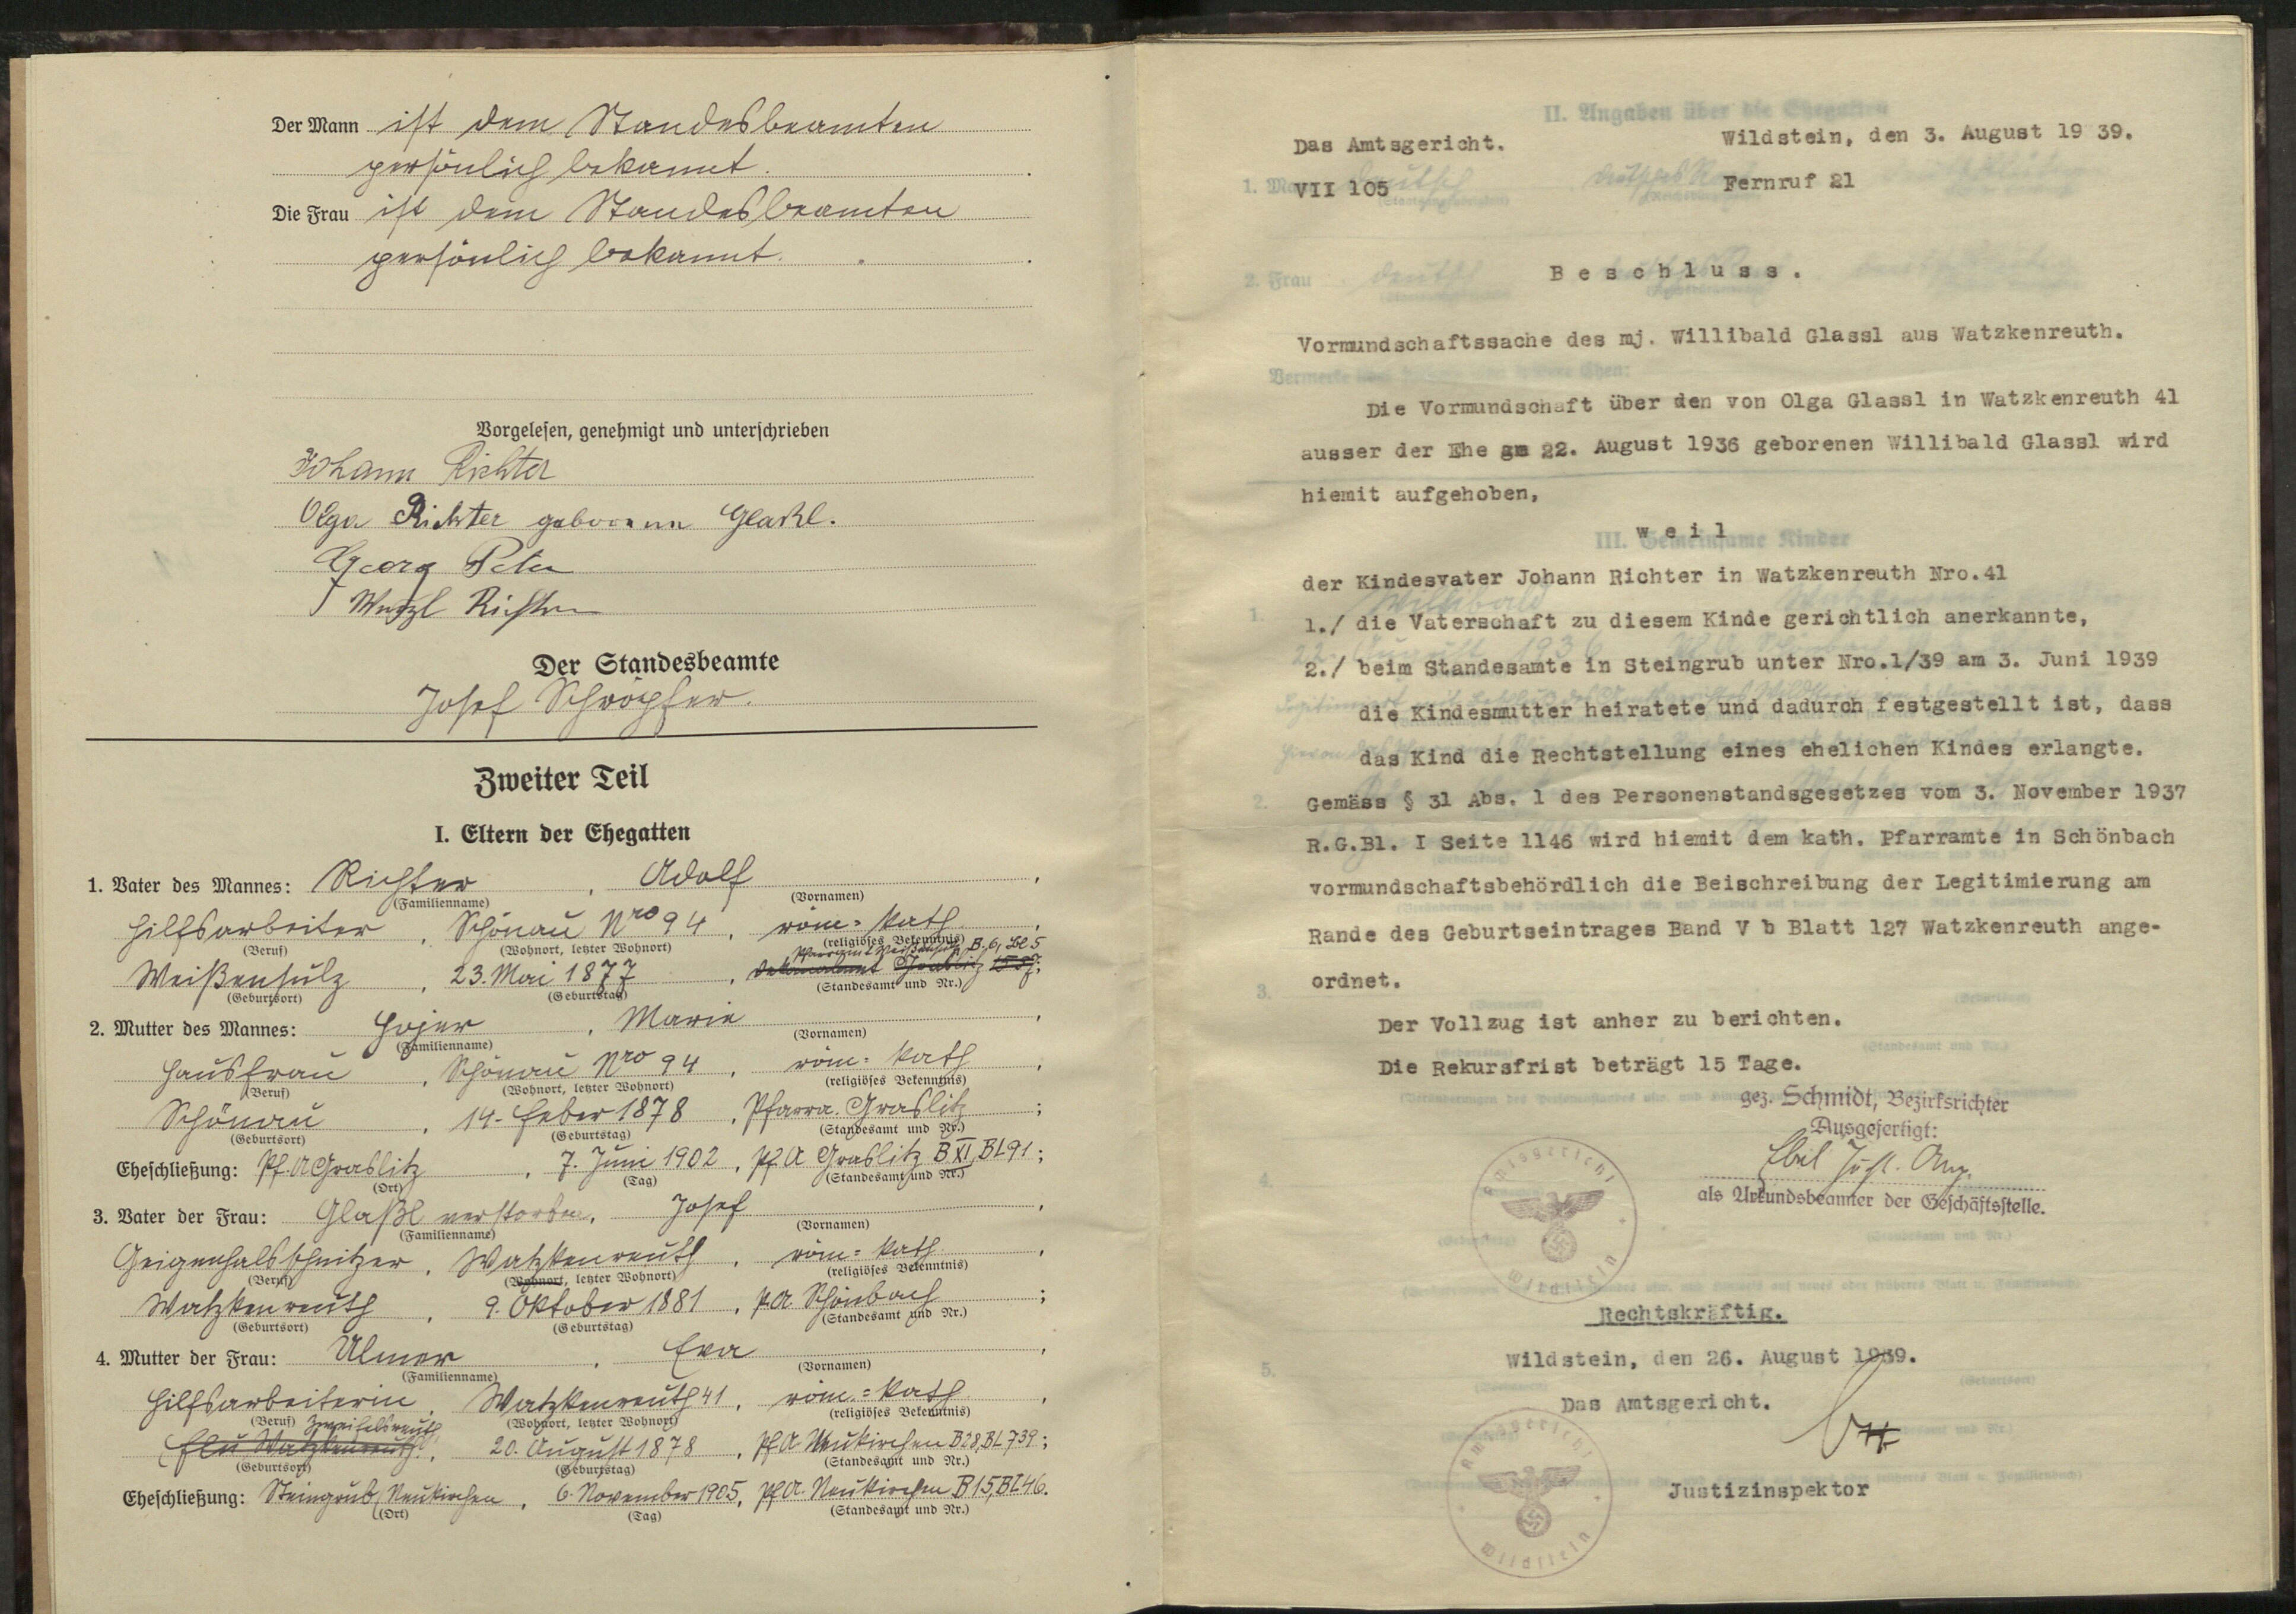 Der Mann ist dem Standesbeamten
persönlich bekannt.
Die Frau ist dem Standesbeamten
persönlich bekannt.
Vorgelesen, genehmigt und unterschrieben
Johann Richter
Olga Richter geborene Glaßl.
Georg Peter
Wenzl Richter
Der Standesbeamte
Josef Schröpfer.
Zweiter Teil
I. Eltern der Ehegatten
1. Vater des Mannes: Richter, Adolf,
(Familienname) (Vornamen)
Hilfsarbeiter, Schönau Nro 94, röm.-kath,
(Beruf) (Wohnort, letzter Wohnort) (religiöses Bekenntnis)
B. 6, Bl 5
Weißensulz, 23. Mai 1877, Graslitz;
(Geburtsort) (Geburtstag) (Standesamt und Nr.)
2. Mutter des Mannes: Hojer, Marie,
(Familienname) (Vornamen)
Hausfrau, Schönau Nro 94, röm.-kath,
(Beruf) (Wohnort, letzter Wohnort) (religiöses Bekenntnis)
Schönau, 14. Feber 1878, Pfarra. Graslitz;
(Geburtsort) (Geburtstag) (Standesamt und Nr.)
Eheschließung: Pf. A Graslitz, 7. Juni 1902, Pf. A Graslitz B XI, Bl 91;
(Ort) (Tag) (Standesamt und Nr.)
3. Vater der Frau: Glaßl verstorben, Josef,
(Familienname) (Vornamen)
Geigenhalsschnitzer, Watzkenreuth, röm.-kath.,
(Beruf) (Wohnort, letzter Wohnort) (religiöses Bekenntnis)
Watzkenreuth, 9. Oktober 1881, P. A. Schönbach;
(Geburtsort) (Geburtstag) (Standesamt und Nr.)
4. Mutter der Frau: Ulmer, Eva,
(Familienname) (Vornamen)
Hilfsarbeiterin, Watzkenreuth 41, röm.-kath,
(Beruf) (Wohnort, letzter Wohnort) (religiöses Bekenntnis)
Zweifelsreuth
Watzkenreuth, 20. August 1878, Pf. A Neukirchen B28, Bl 739;
(Geburtsort) (Geburtstag) (Standesamt und Nr.)
Eheschließung: Steingrub, Neukirchen, 6. November 1905, Pf. A. Neukirchen B15, Bl 46.
(Ort) (Tag) (Standesamt und Nr.)
Das Amtsgericht. Wildstein, den 3. August 19 39.
VII 105 Fernruf 21
Beschluss.
Vormundschaftssache des mj. Willibald Glassl aus Watzkenreuth.
Die Vormundschaft über den von Olga Glassl in Watzkenreuth 41
ausser der Ehe am 22. August 1936 geborenen Willibald Glassl wird
hiemit aufgehoben,
weil
der Kindesvater Johann Richter in Watzkenreuth Nro.41
1./ die Vaterschaft zu diesem Kinde gerichtlich anerkannte,
2./ beim Standesamte in Steingrub unter Nro.1/39 am 3. Juni 1939
die Kindesmutter heiratete und dadurch festgestellt ist, dass
das Kind die Rechtstellung eines ehelichen Kindes erlangte.
Gemäss § 31 Abs. 1 des Personenstandsgesetzes vom 3. November 1937
R.G.Bl. I Seite 1146 wird hiemit dem kath. Pfarramte in Schönbach
vormundschaftsbehördlich die Beischreibung der Legitimierung am
Rande des Geburtseintrages Band V b Blatt 127 Watzkenreuth ange-
ordnet.
Der Vollzug ist anher zu berichten.
Die Rekursfrist beträgt 15 Tage.
gez. Schmidt, Bezirksrichter
Ausgefertigt:
Just. Ang.
als Urkundsbeamter der Geschäftsstelle.
Amtsgericht Wildstein
Rechtskräftig.
Wildstein, den 26. August 1939.
Das Amtsgericht.
Amtsgericht Wildstein
Justizinspektor